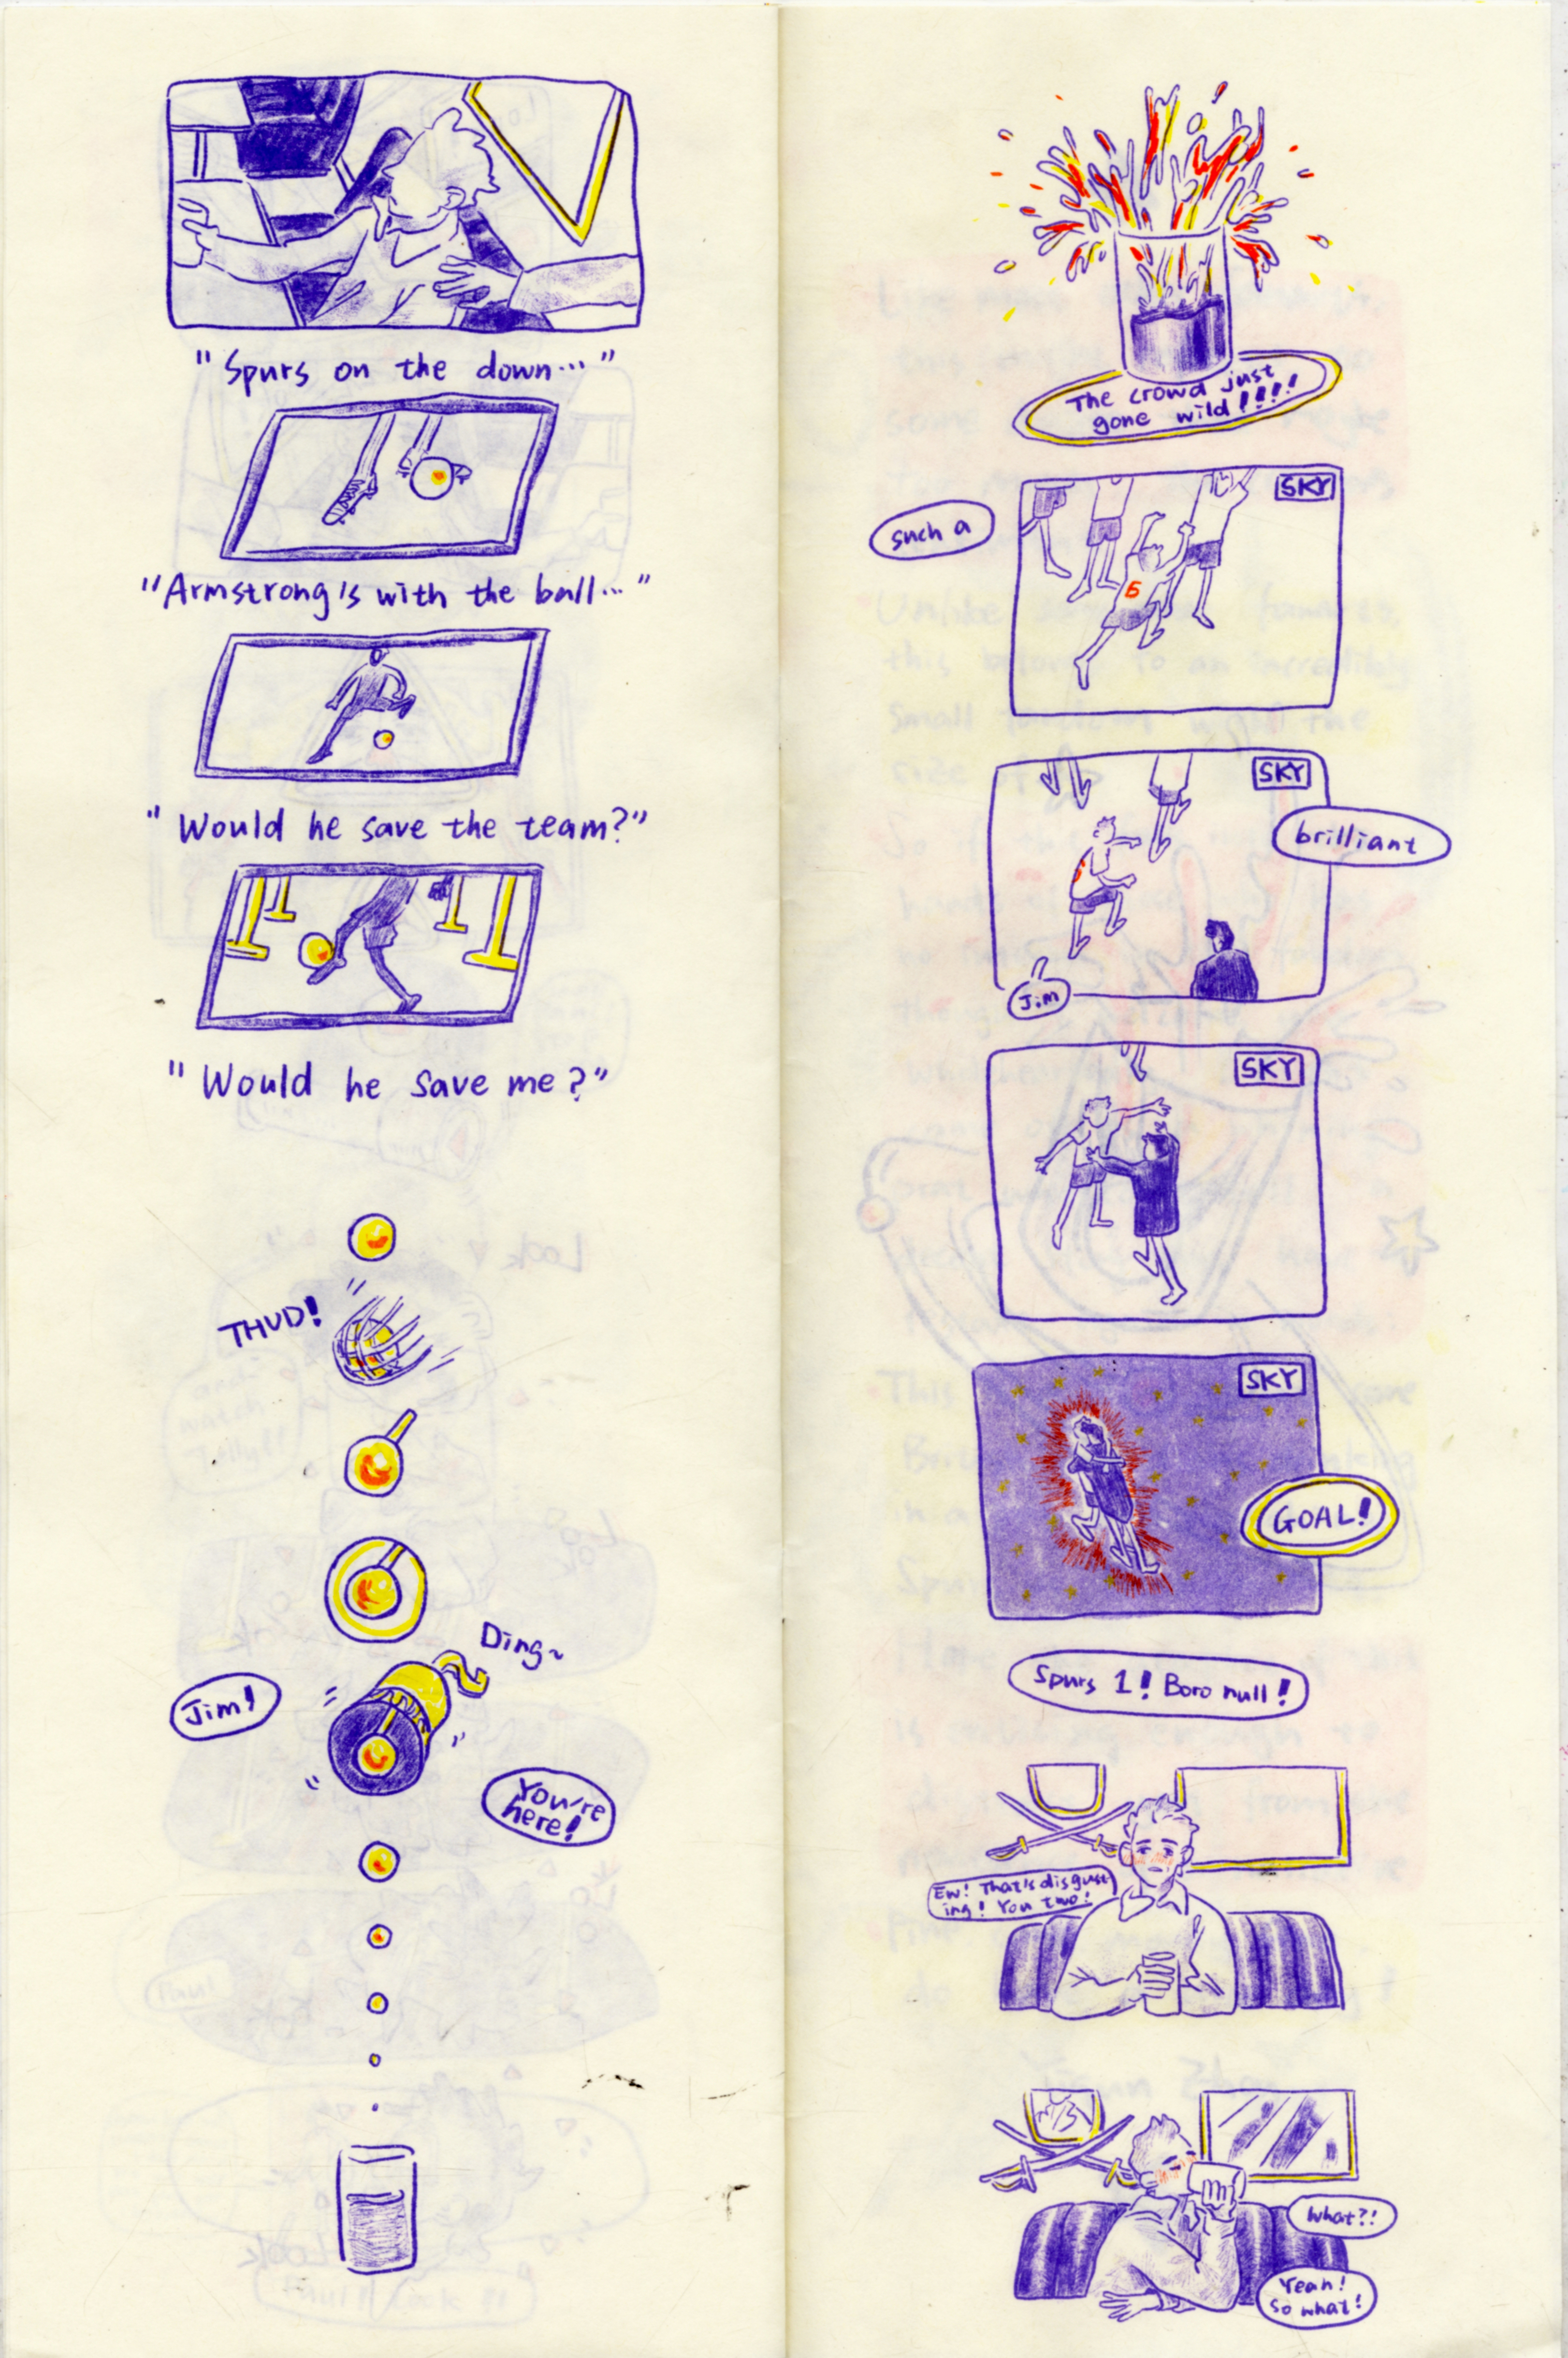 "Spurs on the down..."
"Armstrong's with the ball..."
"Would he save the team?"
"Would he save me?"
THUD!
Ding~
Jim!
You're
here!
The crowd just
gone wild!!!!
SKY
such a
6
SKY
brilliant
Jim
SKY
SKY
GOAL!
Spurs 1! Boro null!
Ew! That's disgust-
ing! You two!
What?!
Yeah!
So what!